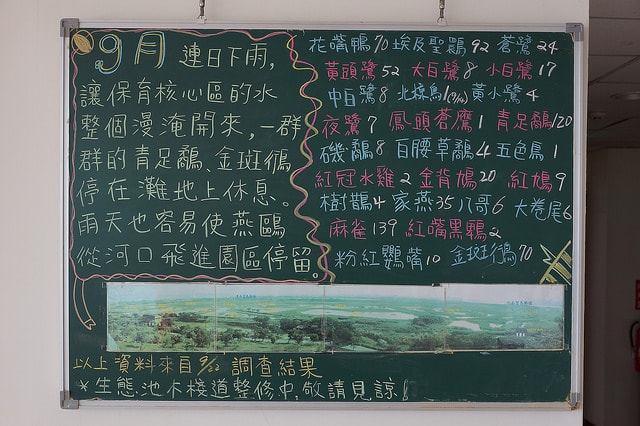 9月 連日下雨,
讓保育核心區的水
整個漫淹開來,一群
群的青足鷸、金斑鴴
停在灘地上休息。
雨天也容易使燕鷗
從河口飛進園區停留。
花嘴鴨70 埃及聖䴉92 蒼鷺24
黃頭鷺52 大白鷺8 小白鷺17
中白鷺8 黃小鷺4
夜鷺7 鳳頭蒼鷹1 青足鷸120
磯鷸8 百腰草鷸4 五色鳥1
紅冠水雞2 金背鳩20 紅鳩9
樹鵲4 家燕35 八哥6 大卷尾6
麻雀139 紅嘴黑鵯2
粉紅鸚嘴10 金斑鴴70
以上資料來自9/22調查結果
*生態池木棧道整修中,敬請見諒!